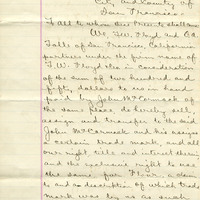 City and County of
San Francisco
To all to whom these Presents shall
We, Geo. Floyd and
Falls of San Francisco, California
partners under the firm name of
Floyd in Consideration
of the sum of two hundred and
fifty dollars to us in hand
paid by John McCormack of
the same place do hereby sell
assign and transfer to the said
John McCormack and his assigns
a certain trade mark, and all
our right title and interest therein
and the exclusive right to use
the same for
to and as description of which trade
mark was